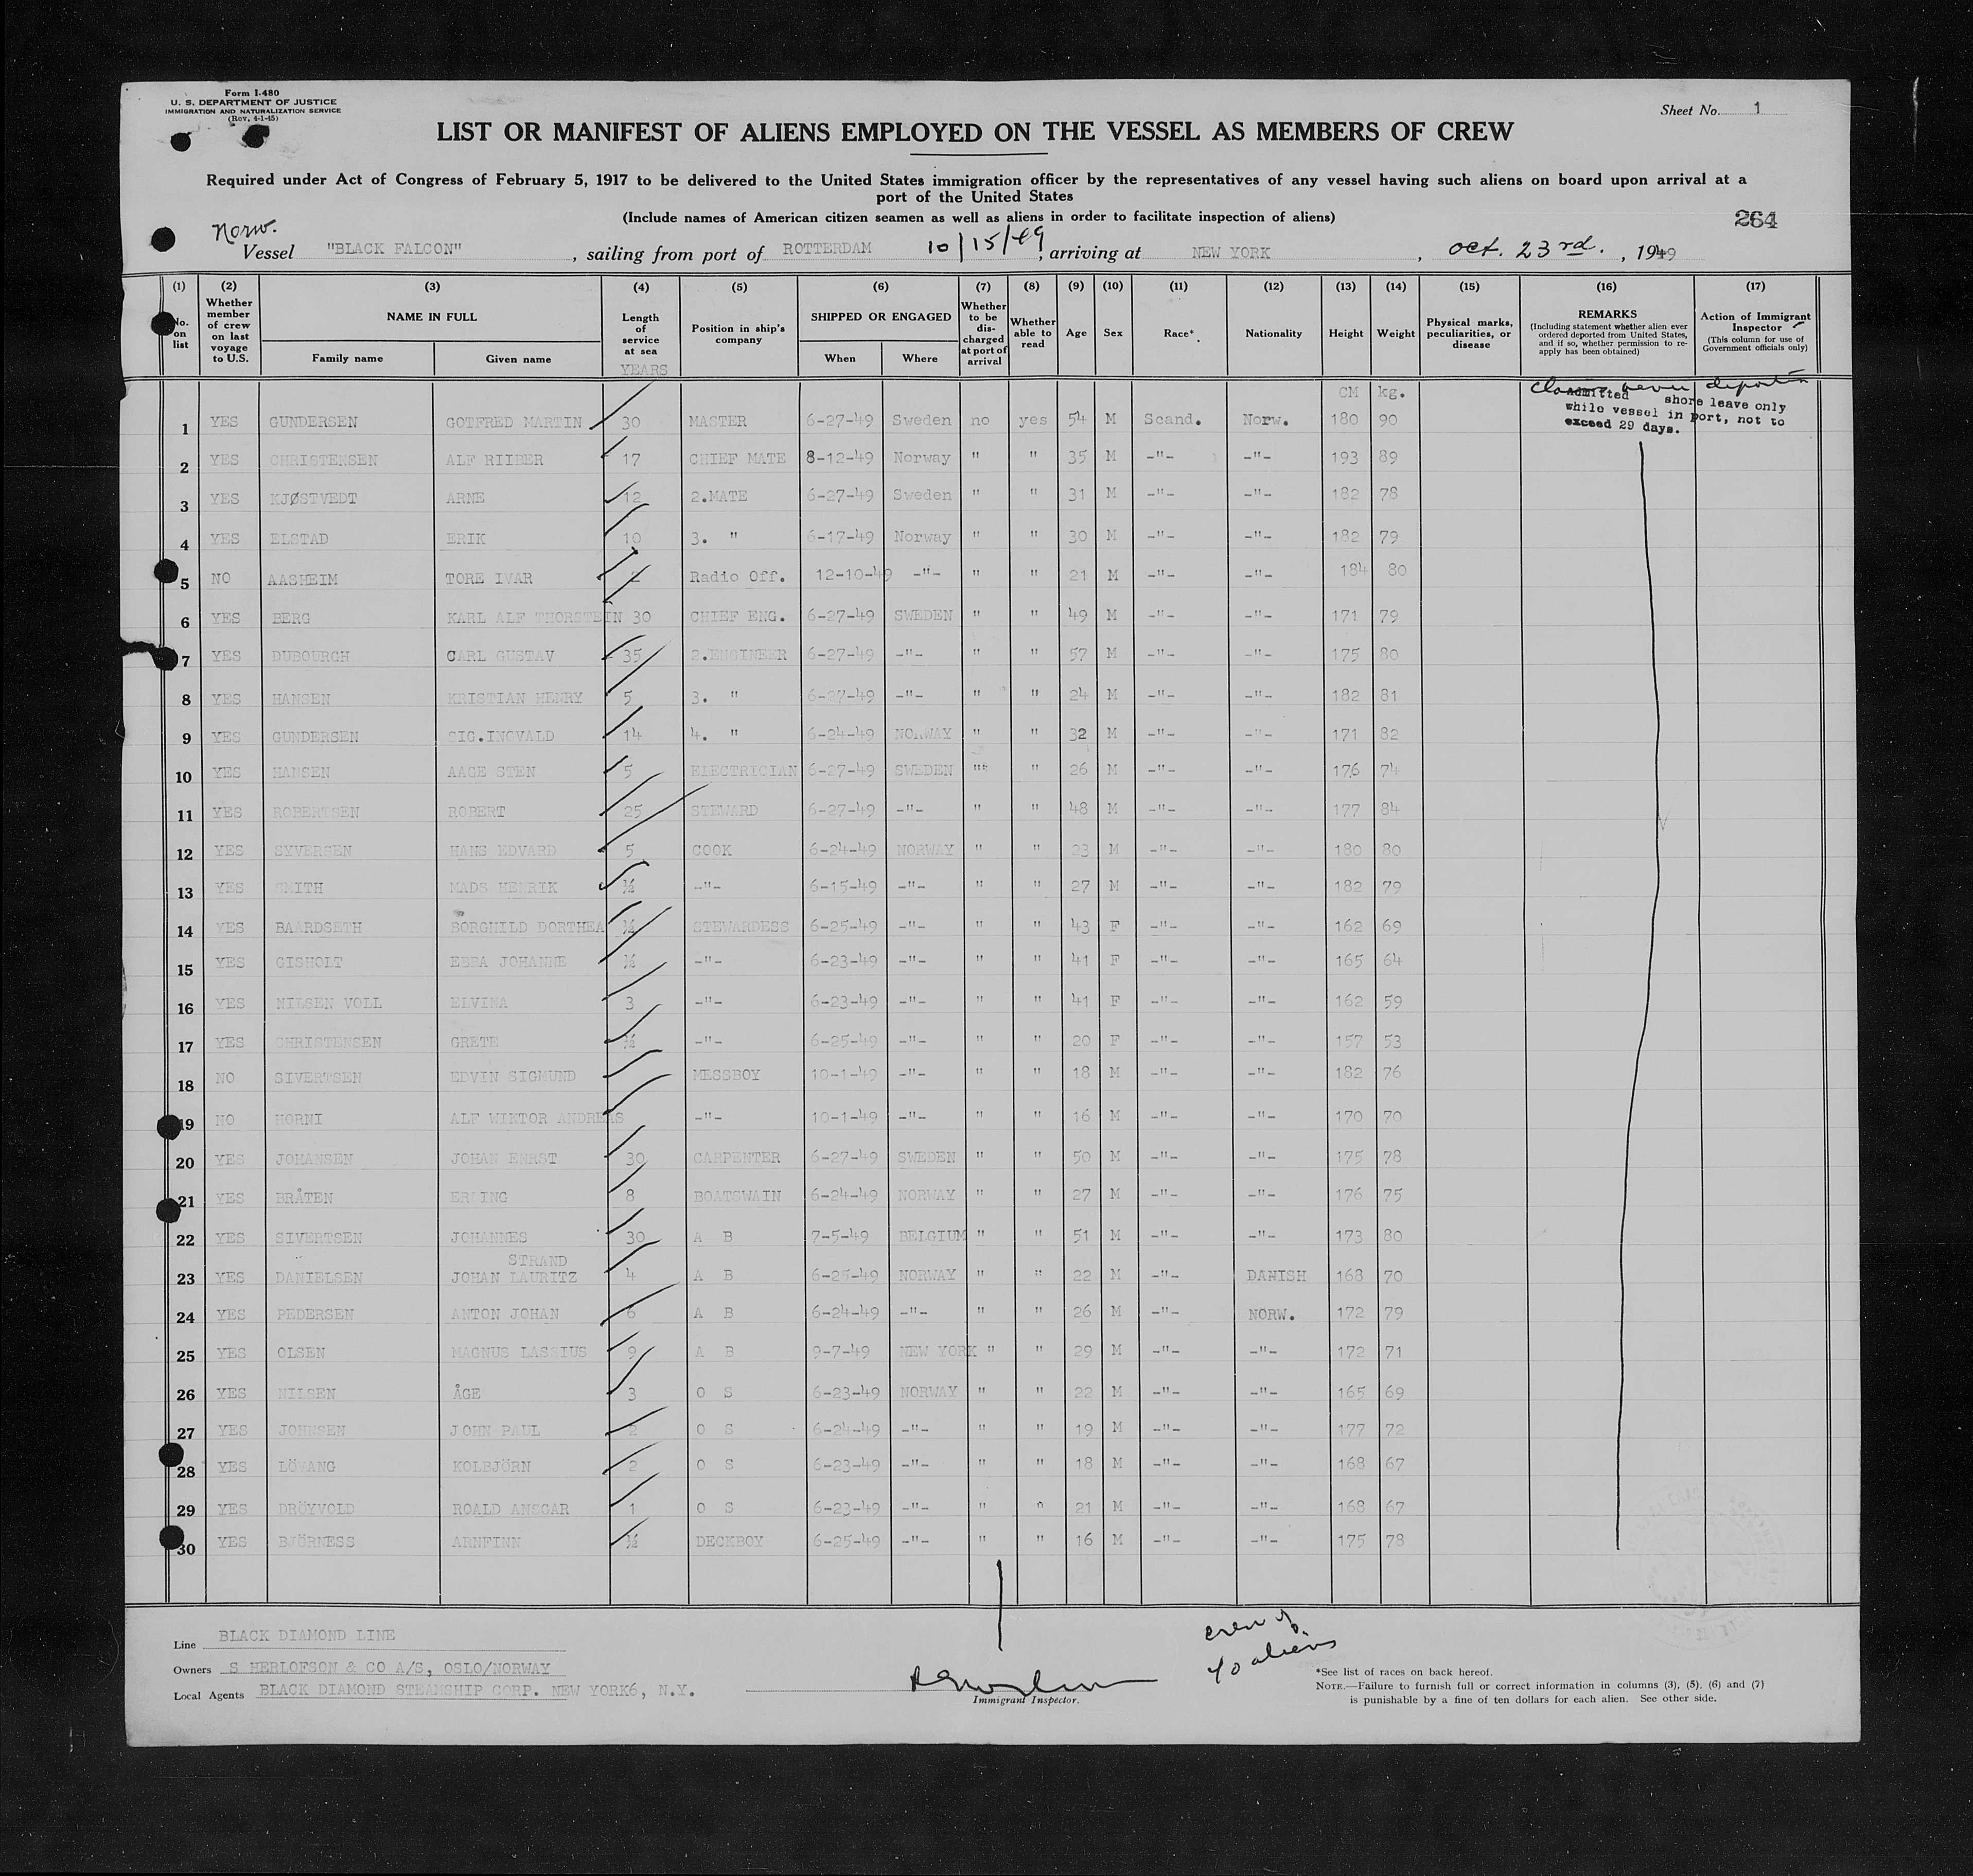 Form I-480
U. S. DEPARTMENT OF JUSTICE
IMMIGRATION AND NATURALIZATION SERVICE
(Rev. 4-1-45)
Sheet No. 1
LIST OR MANIFEST OF ALIENS EMPLOYED ON THE VESSEL AS MEMBERS OF CREW
Required under Act of Congress of February 5, 1917 to be delivered to the United States immigration officer by the representatives of any vessel having such aliens on board upon arrival at a
port of the United States
(Include names of American citizen seamen as well as aliens in order to facilitate inspection of aliens)
264
Norw.
Vessel "BLACK FALCON", sailing from port of ROTTERDAM 10/15/49, arriving at NEW YORK, Oct. 23rd., 1949
(1) (2) (3) (4) (5) (6) (7) (8) (9) (10) (11) (12) (13) (14) (15) (16) (17)
No. on list
Whether member of crew on last voyage to U.S.
NAME IN FULL
Family name
Given name
Length of service at sea
YEARS
Position in ship's company
SHIPPED OR ENGAGED
When
Where
Whether to be discharged at port of arrival
Whether able to read
Age
Sex
Race*
Nationality
Height
Weight
Physical marks, peculiarities, or disease
REMARKS
(Including statement whether alien ever ordered deported from United States, and if so, whether permission to re-apply has been obtained)
Action of Immigrant Inspector
(This column for use of Government officials only)
CM kg.
never deported
Admitted shore leave only
while vessel in port, not to
exceed 29 days.
1 YES GUNDERSEN GOTFRED MARTIN 30 MASTER 6-27-49 Sweden no yes 54 M Scand. Norw. 180 90
2 YES CHRISTENSEN ALF RIIBER 17 CHIEF MATE 8-12-49 Norway " " 35 M -"- -"- 193 89
3 YES KJØSTVEDT ARNE 12 2.MATE 6-27-49 Sweden " " 31 M -"- -"- 182 78
4 YES ELSTAD ERIK 10 3. " 6-17-49 Norway " " 30 M -"- -"- 182 79
5 NO AASHEIM TORE IVAR 2 Radio Off. 12-10-49 -"- " " 21 M -"- -"- 184 80
6 YES BERG KARL ALF THORSTEIN 30 CHIEF ENG. 6-27-49 SWEDEN " " 49 M -"- -"- 171 79
7 YES DUBOURGH CARL GUSTAV 35 2.ENGINEER 6-27-49 -"- " " 57 M -"- -"- 175 80
8 YES HANSEN KRISTIAN HENRY 5 3. " 6-27-49 -"- " " 24 M -"- -"- 182 81
9 YES GUNDERSEN SIG.INGVALD 14 4. " 6-24-49 NORWAY " " 32 M -"- -"- 171 82
10 YES HANSEN AAGE STEN 5 ELECTRICIAN 6-27-49 SWEDEN "" " 26 M -"- -"- 176 74
11 YES ROBERTSEN ROBERT 25 STEWARD 6-27-49 -"- " " 48 M -"- -"- 177 84
12 YES SYVERSEN HANS EDVARD 5 COOK 6-24-49 NORWAY " " 23 M -"- -"- 180 80
13 YES SMITH MADS HENRIK ½ -"- 6-15-49 -"- " " 27 M -"- -"- 182 79
14 YES BAARDSETH BORGHILD DORTHEA ½ STEWARDESS 6-25-49 -"- " " 43 F -"- -"- 162 69
15 YES GISHOLT EBBA JOHANNE ½ -"- 6-23-49 -"- " " 41 F -"- -"- 165 64
16 YES NILSEN VOLL ELVINA 3 -"- 6-23-49 -"- " " 41 F -"- -"- 162 59
17 YES CHRISTENSEN GRETE ½ -"- 6-25-49 -"- " " 20 F -"- -"- 157 53
18 NO SIVERTSEN EDVIN SIGMUND MESSBOY 10-1-49 -"- " " 18 M -"- -"- 182 76
19 NO HORNI ALF WIKTOR ANDREAS -"- 10-1-49 -"- " " 16 M -"- -"- 170 70
20 YES JOHANSEN JOHAN ENRST 30 CARPENTER 6-27-49 SWEDEN " " 50 M -"- -"- 175 78
21 YES BRÅTEN ERLING 8 BOATSWAIN 6-24-49 NORWAY " " 27 M -"- -"- 176 75
22 YES SIVERTSEN JOHANNES 30 A B 7-5-49 BELGIUM " " 51 M -"- -"- 173 80
STRAND
23 YES DANIELSEN JOHAN LAURITZ 4 A B 6-25-49 NORWAY " " 22 M -"- DANISH 168 70
24 YES PEDERSEN ANTON JOHAN 6 A B 6-24-49 -"- " " 26 M -"- NORW. 172 79
25 YES OLSEN MAGNUS LASSIUS 9 A B 9-7-49 NEW YORK " " 29 M -"- -"- 172 71
26 YES NILSEN ÅGE 3 O S 6-23-49 NORWAY " " 22 M -"- -"- 165 69
27 YES JOHNSEN JOHN PAUL 2 O S 6-24-49 -"- " " 19 M -"- -"- 177 72
28 YES LÖVANG KOLBJÖRN 2 O S 6-23-49 -"- " " 18 M -"- -"- 168 67
29 YES DRÖYVOLD ROALD ANSGAR 1 O S 6-23-49 -"- " " 21 M -"- -"- 168 67
30 YES BJÖRNESS ARNFINN ½ DECKBOY 6-25-49 -"- " " 16 M -"- -"- 175 78
Line BLACK DIAMOND LINE
Owners S HERLOFSON & CO A/S, OSLO/NORWAY
Local Agents BLACK DIAMOND STEAMSHIP CORP. NEW YORK6, N.Y.
Immigrant Inspector.
crew of
40 aliens
*See list of races on back hereof.
NOTE.—Failure to furnish full or correct information in columns (3), (5), (6) and (7)
is punishable by a fine of ten dollars for each alien. See other side.